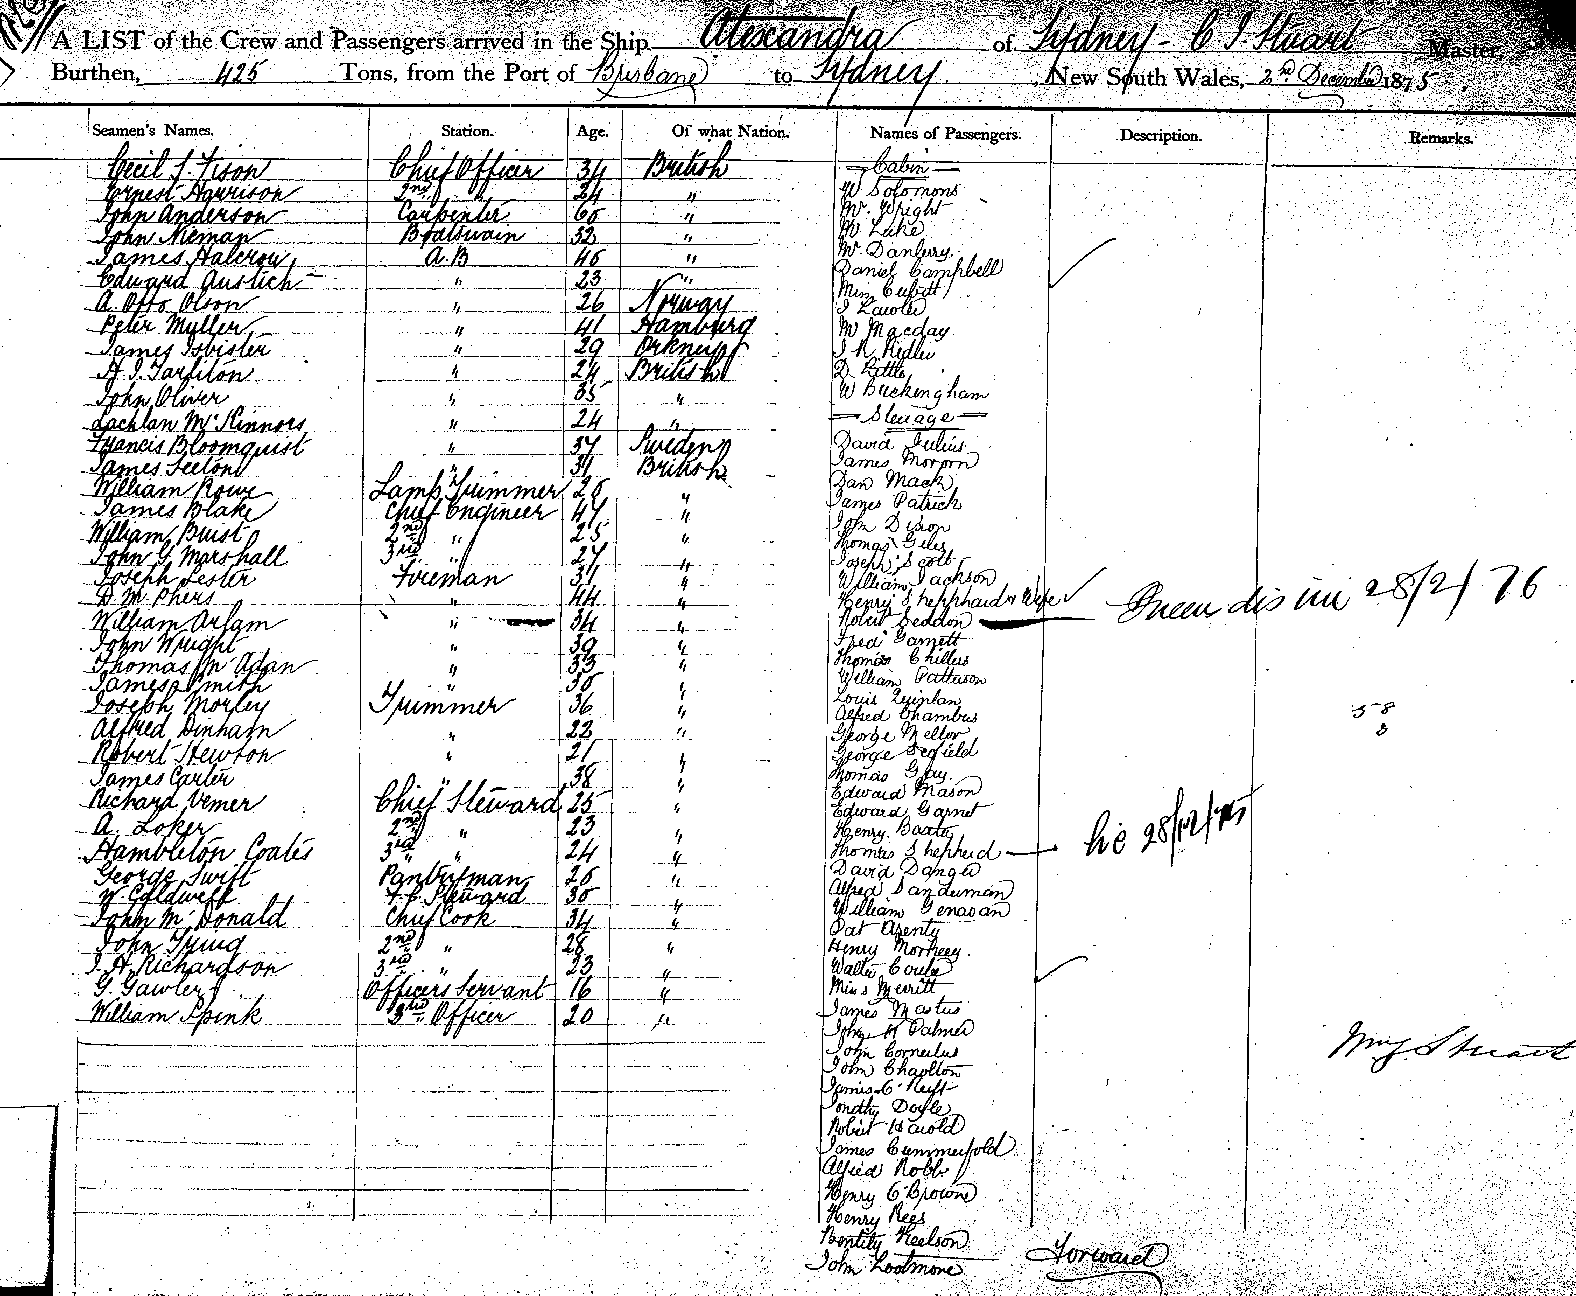 A LIST of the Crew and Passengers arrived in the Ship Alexandra of Sydney - C I Stuart Master
Burthen, 425 Tons, from the Port of Brisbane to Sydney. New South Wales, 2nd December 1875
Seamen's Names. Station. Age. Of what Nation. Names of Passengers. Description. Remarks.
Cecil J. Fison Chief Officer 34 British — Cabin —
Ernest Harrison 2nd " 24 " W Solomons
John Anderson Carpenter 60 " Mr. Wright
John Nieman Boatswain 32 " Lake
James Halcrow A.B " Mr. Danbury.
Edward Austich " 23 " Daniel Campbell
A. Otto Olson " 26 Norway Miss Cubitt
Peter Muller " 41 Hamburg J Lawler
James Isbister " 29 Orkneys Macday
H. J. Tarliton " 24 British
John Oliver " 35 " D. Little
Lachlan McKinnors " 24 " W Buckingham
Francis Bloomquist " 37 Sweden — Steerage —
James Seeton " 31 British David Julius
William Rowe Lamp Trimmer " James
James Blake Chief Engineer 47 " Dan Mack
William Buist 2nd " 25 " James Patrick
John G Marshall 3rd " 27 " John Dixon
Joseph Lester Fireman 31 " Thomas Giles
D. M. Phers " 44 " Joseph Scott
William " 34 " William Jackson
John Wright " 39 " Henry Shepphard & Wife 28/2/76
Thomas McAdan " 33 " Robert Seddon
James Smith " " Fred Garnett
Joseph Morley Trimmer 36 " Thomas
Alfred Dinham " 22 " William Patterson
Robert Hewton " 21 " Louis Quinlan
James Carter " 38 " Alfred Chambers 58
Richard Vemer Chief Steward 25 " George Mellor 3
A. Loker 2nd " 23 " George
Hambleton Coates 3rd " 24 " Thomas Gray.
George Swift Pantryman 26 " Edward Mason
W. Caldwell Steward 30 " Edward Garnet
John McDonald Chief Cook 34 " Henry Baxter
John 2nd " 28 " Thomas Shepherd 28/12/75
J. H. Richardson 3rd " 23 " David
G. Gawler Officers Servant 16 " Alfred Sanderman
William Spink 3rd Officer 20 " William Genasan
Pat
Henry
Walter
Miss Merritt
James Mastus
John H Palmer
John Cornelius
John Charlton
James
Timothy Doyle
Robert Harold
James
Alfred Robb
Henry C Brown
Henry Rees
Neelson
John Lootmore Forward
Stuart